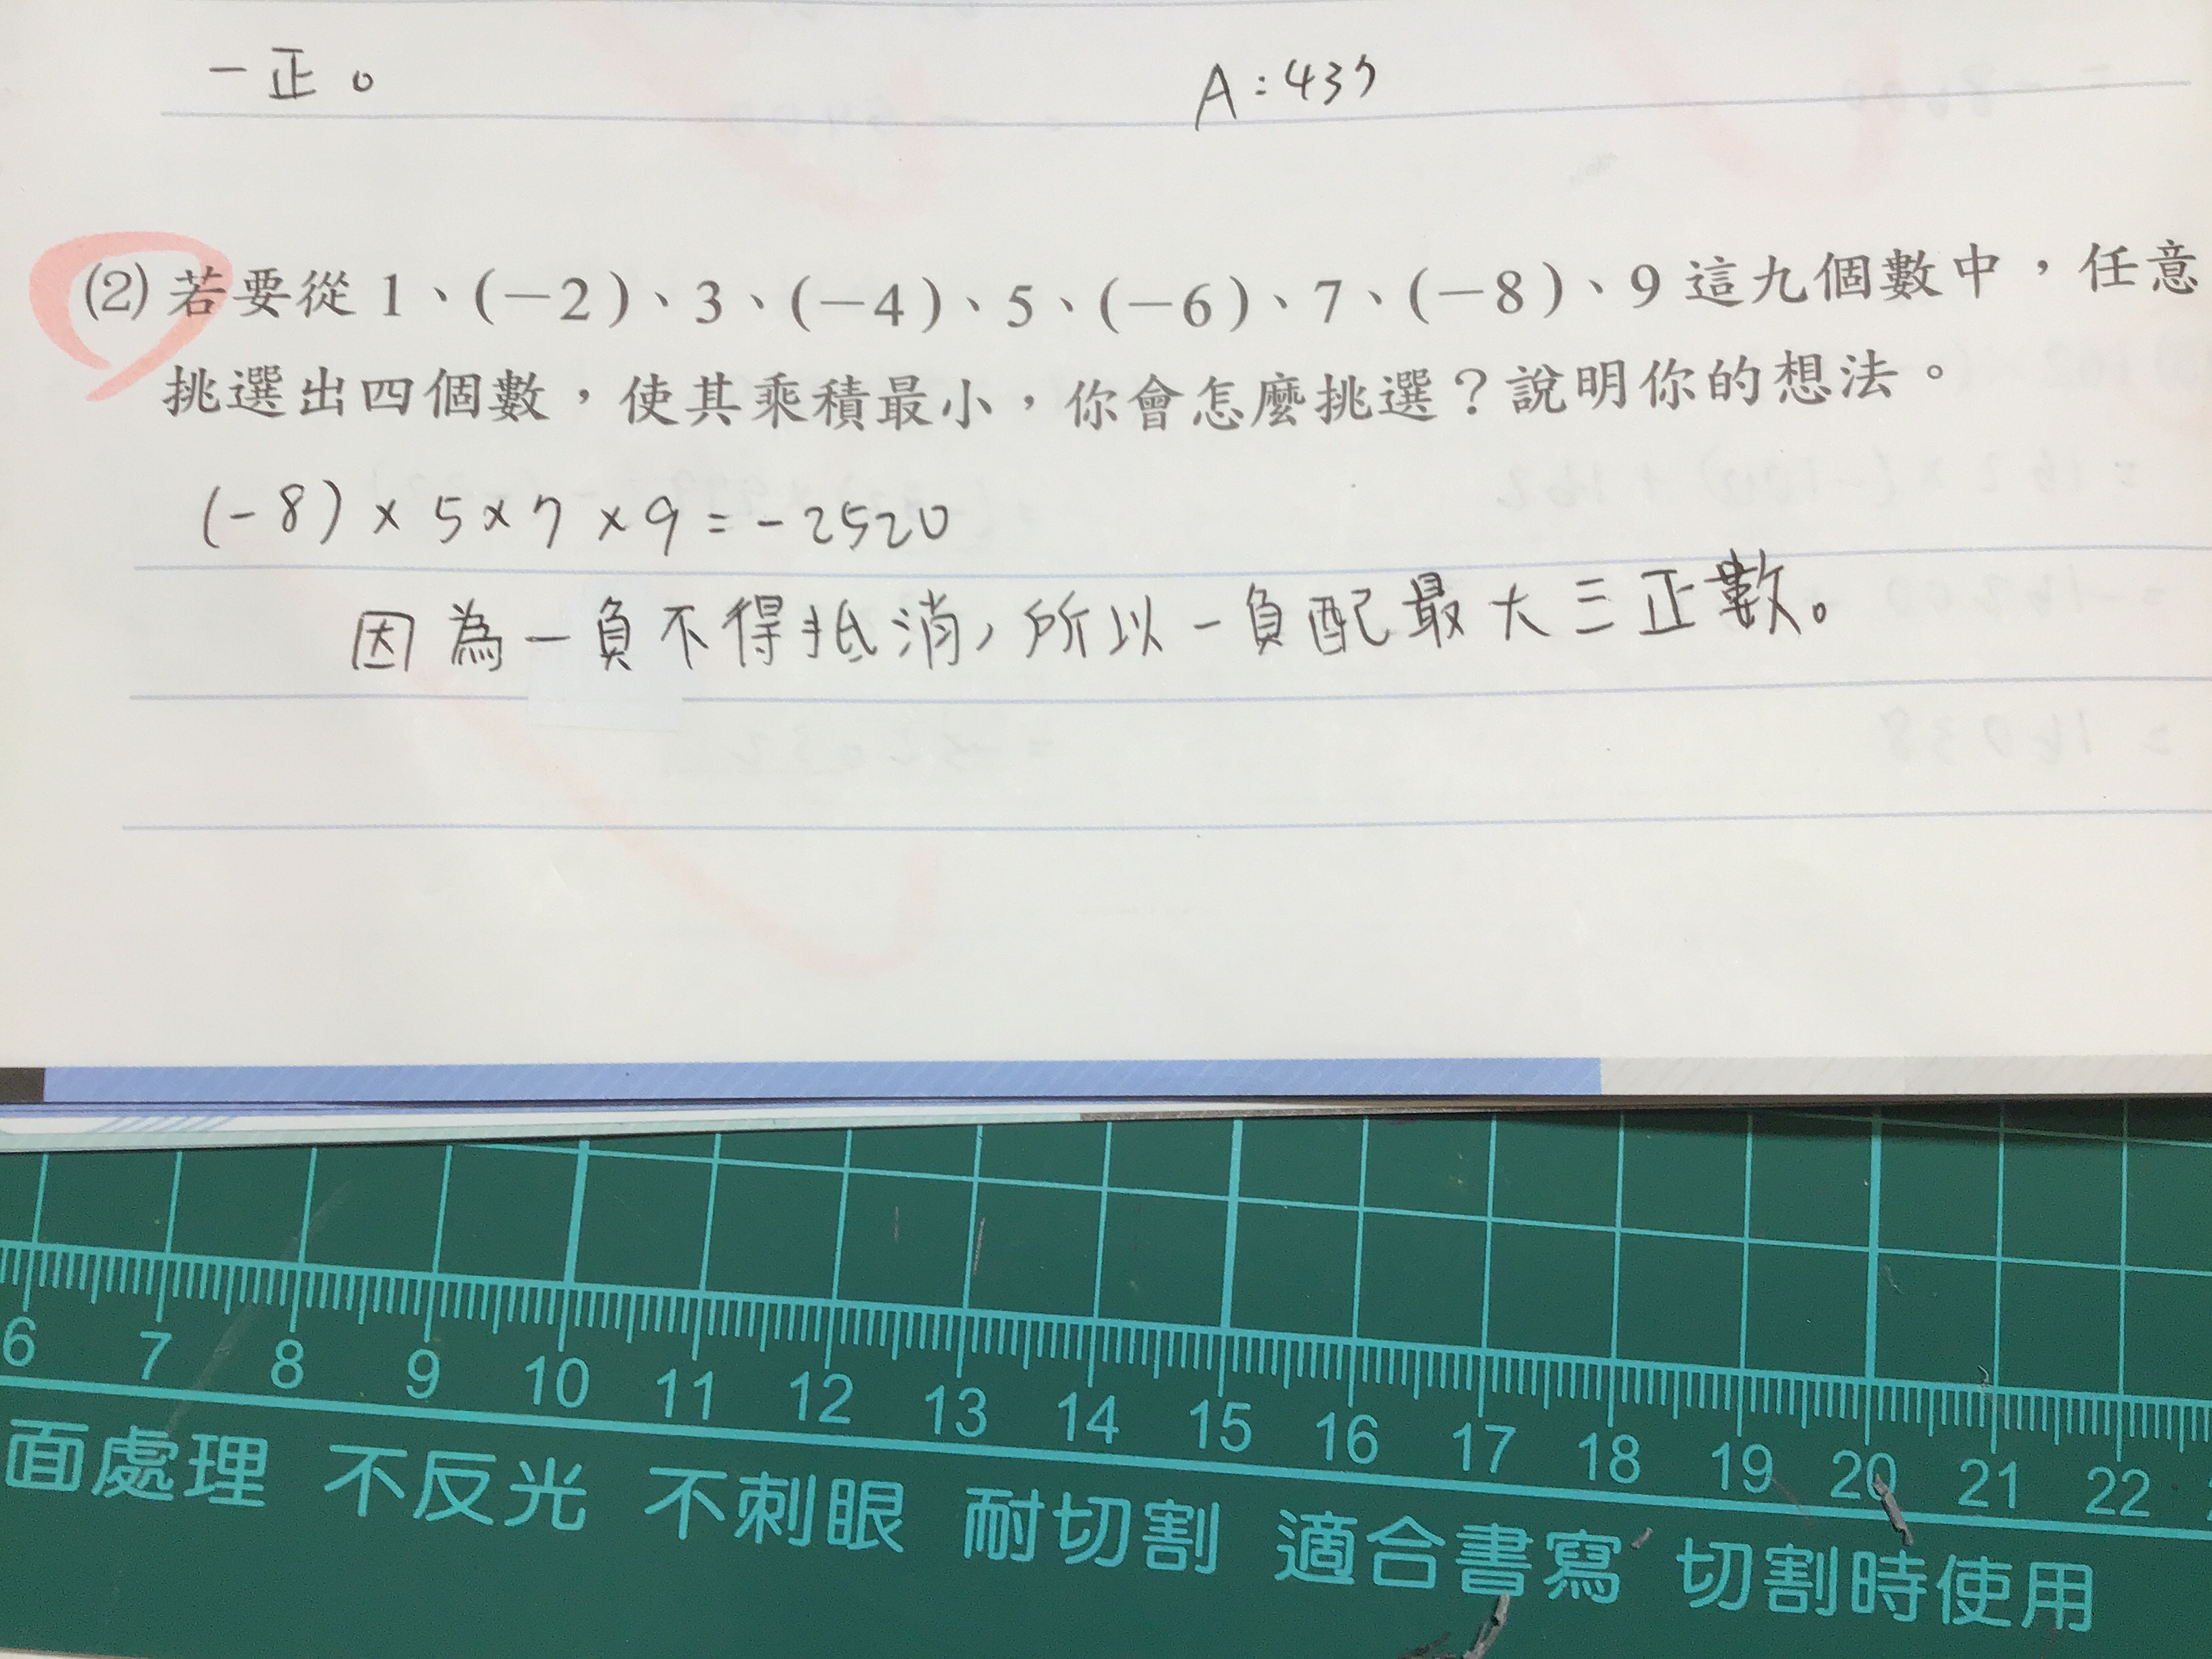 一正。 A:437
(2) 若要從 1、(－2)、3、(－4)、5、(－6)、7、(－8)、9 這九個數中，任意
挑選出四個數，使其乘積最小，你會怎麼挑選？說明你的想法。
(-8) × 5 × 7 × 9 = -2520
因為一負不得抵消，所以一負配最大三正數。
6 7 8 9 10 11 12 13 14 15 16 17 18 19 20 21 22
面處理 不反光 不刺眼 耐切割 適合書寫 切割時使用